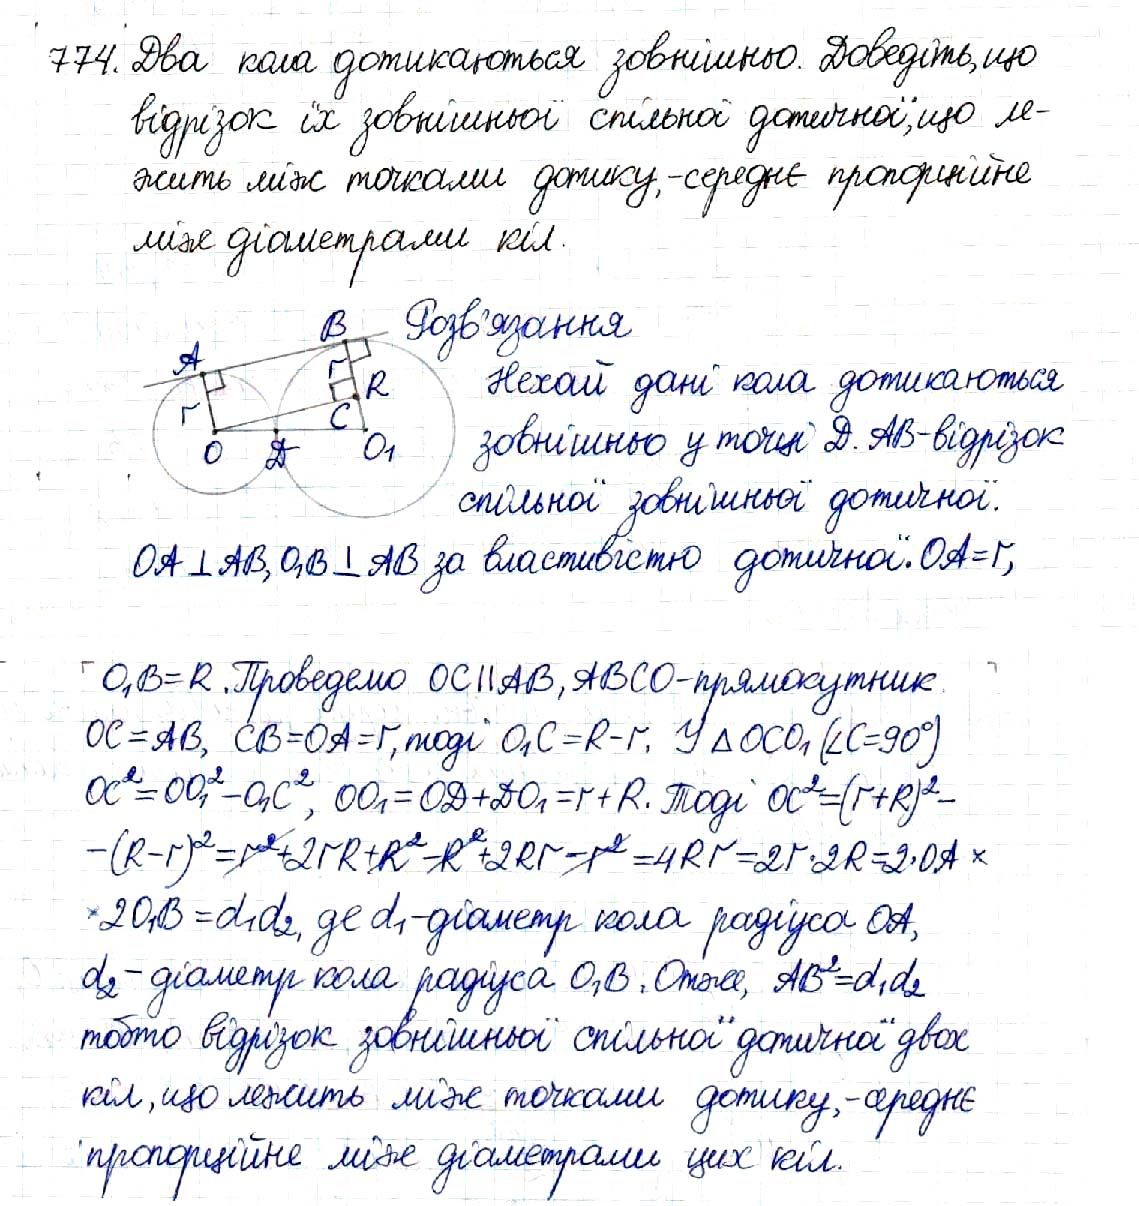 774. Два кола дотикаються зовнішньо. Доведіть, що
відрізок їх зовнішньої спільної дотичної, що ле-
жить між точками дотику, - середнє пропорційне
між діаметрами кіл.
Розв'язання
A B r R r C O D O₁
Нехай дані кола дотикаються
зовнішньо у точці D. AB - відрізок
спільної зовнішньої дотичної.
OA⊥AB, O₁B⊥AB за властивістю дотичної. OA=r,
O₁B=R. Проведемо OC||AB, ABCO - прямокутник
OC=AB, CB=OA=r, тоді O₁C=R-r. У △OCO₁ (∠C=90°)
OC²=OO₁²-O₁C², OO₁=OD+DO₁=r+R. Тоді OC²=(r+R)²-
-(R-r)²=r²+2rR+R²-R²+2Rr-r²=4Rr=2r·2R=2·OA×
×2O₁B=d₁d₂, де d₁-діаметр кола радіуса OA,
d₂-діаметр кола радіуса O₁B. Отже, AB²=d₁d₂
тобто відрізок зовнішньої спільної дотичної двох
кіл, що лежить між точками дотику, - середнє
пропорційне між діаметрами цих кіл.